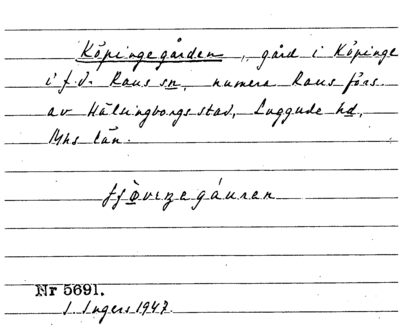 Köpingegården, gård i Köpinge
i f.d. Raus sn, numera Raus förs.
av Hälsingborgs stad, Luggude hd,
Mhs län.
Nr 5691.
I. Ingers 1947.